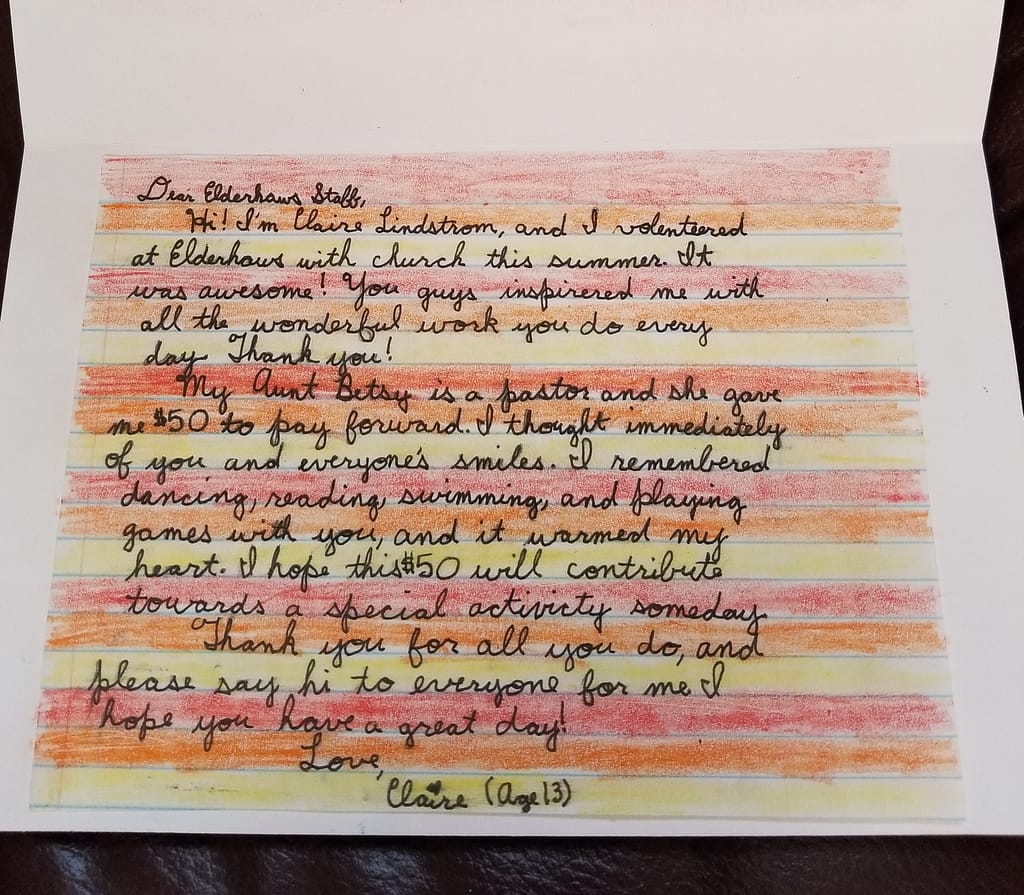 Dear Elderhaws Staff,
Hi! I'm Claire Lindstrom, and I volenteered
at Elderhaus with church this summer. It
was awesome! You guys inspirered me with
all the wonderful work you do every
day. Thank you!
My Aunt Betsy is a pastor and she gave
me $50 to pay forward. I thought immediately
of you and everyone's smiles. I remembered
dancing, reading, swimming, and playing
games with you, and it warmed my
heart. I hope this $50 will contribute
towards a special activicty someday.
Thank you for all you do, and
please say hi to everyone for me. I
hope you have a great day!
Love,
Claire (Age 13)